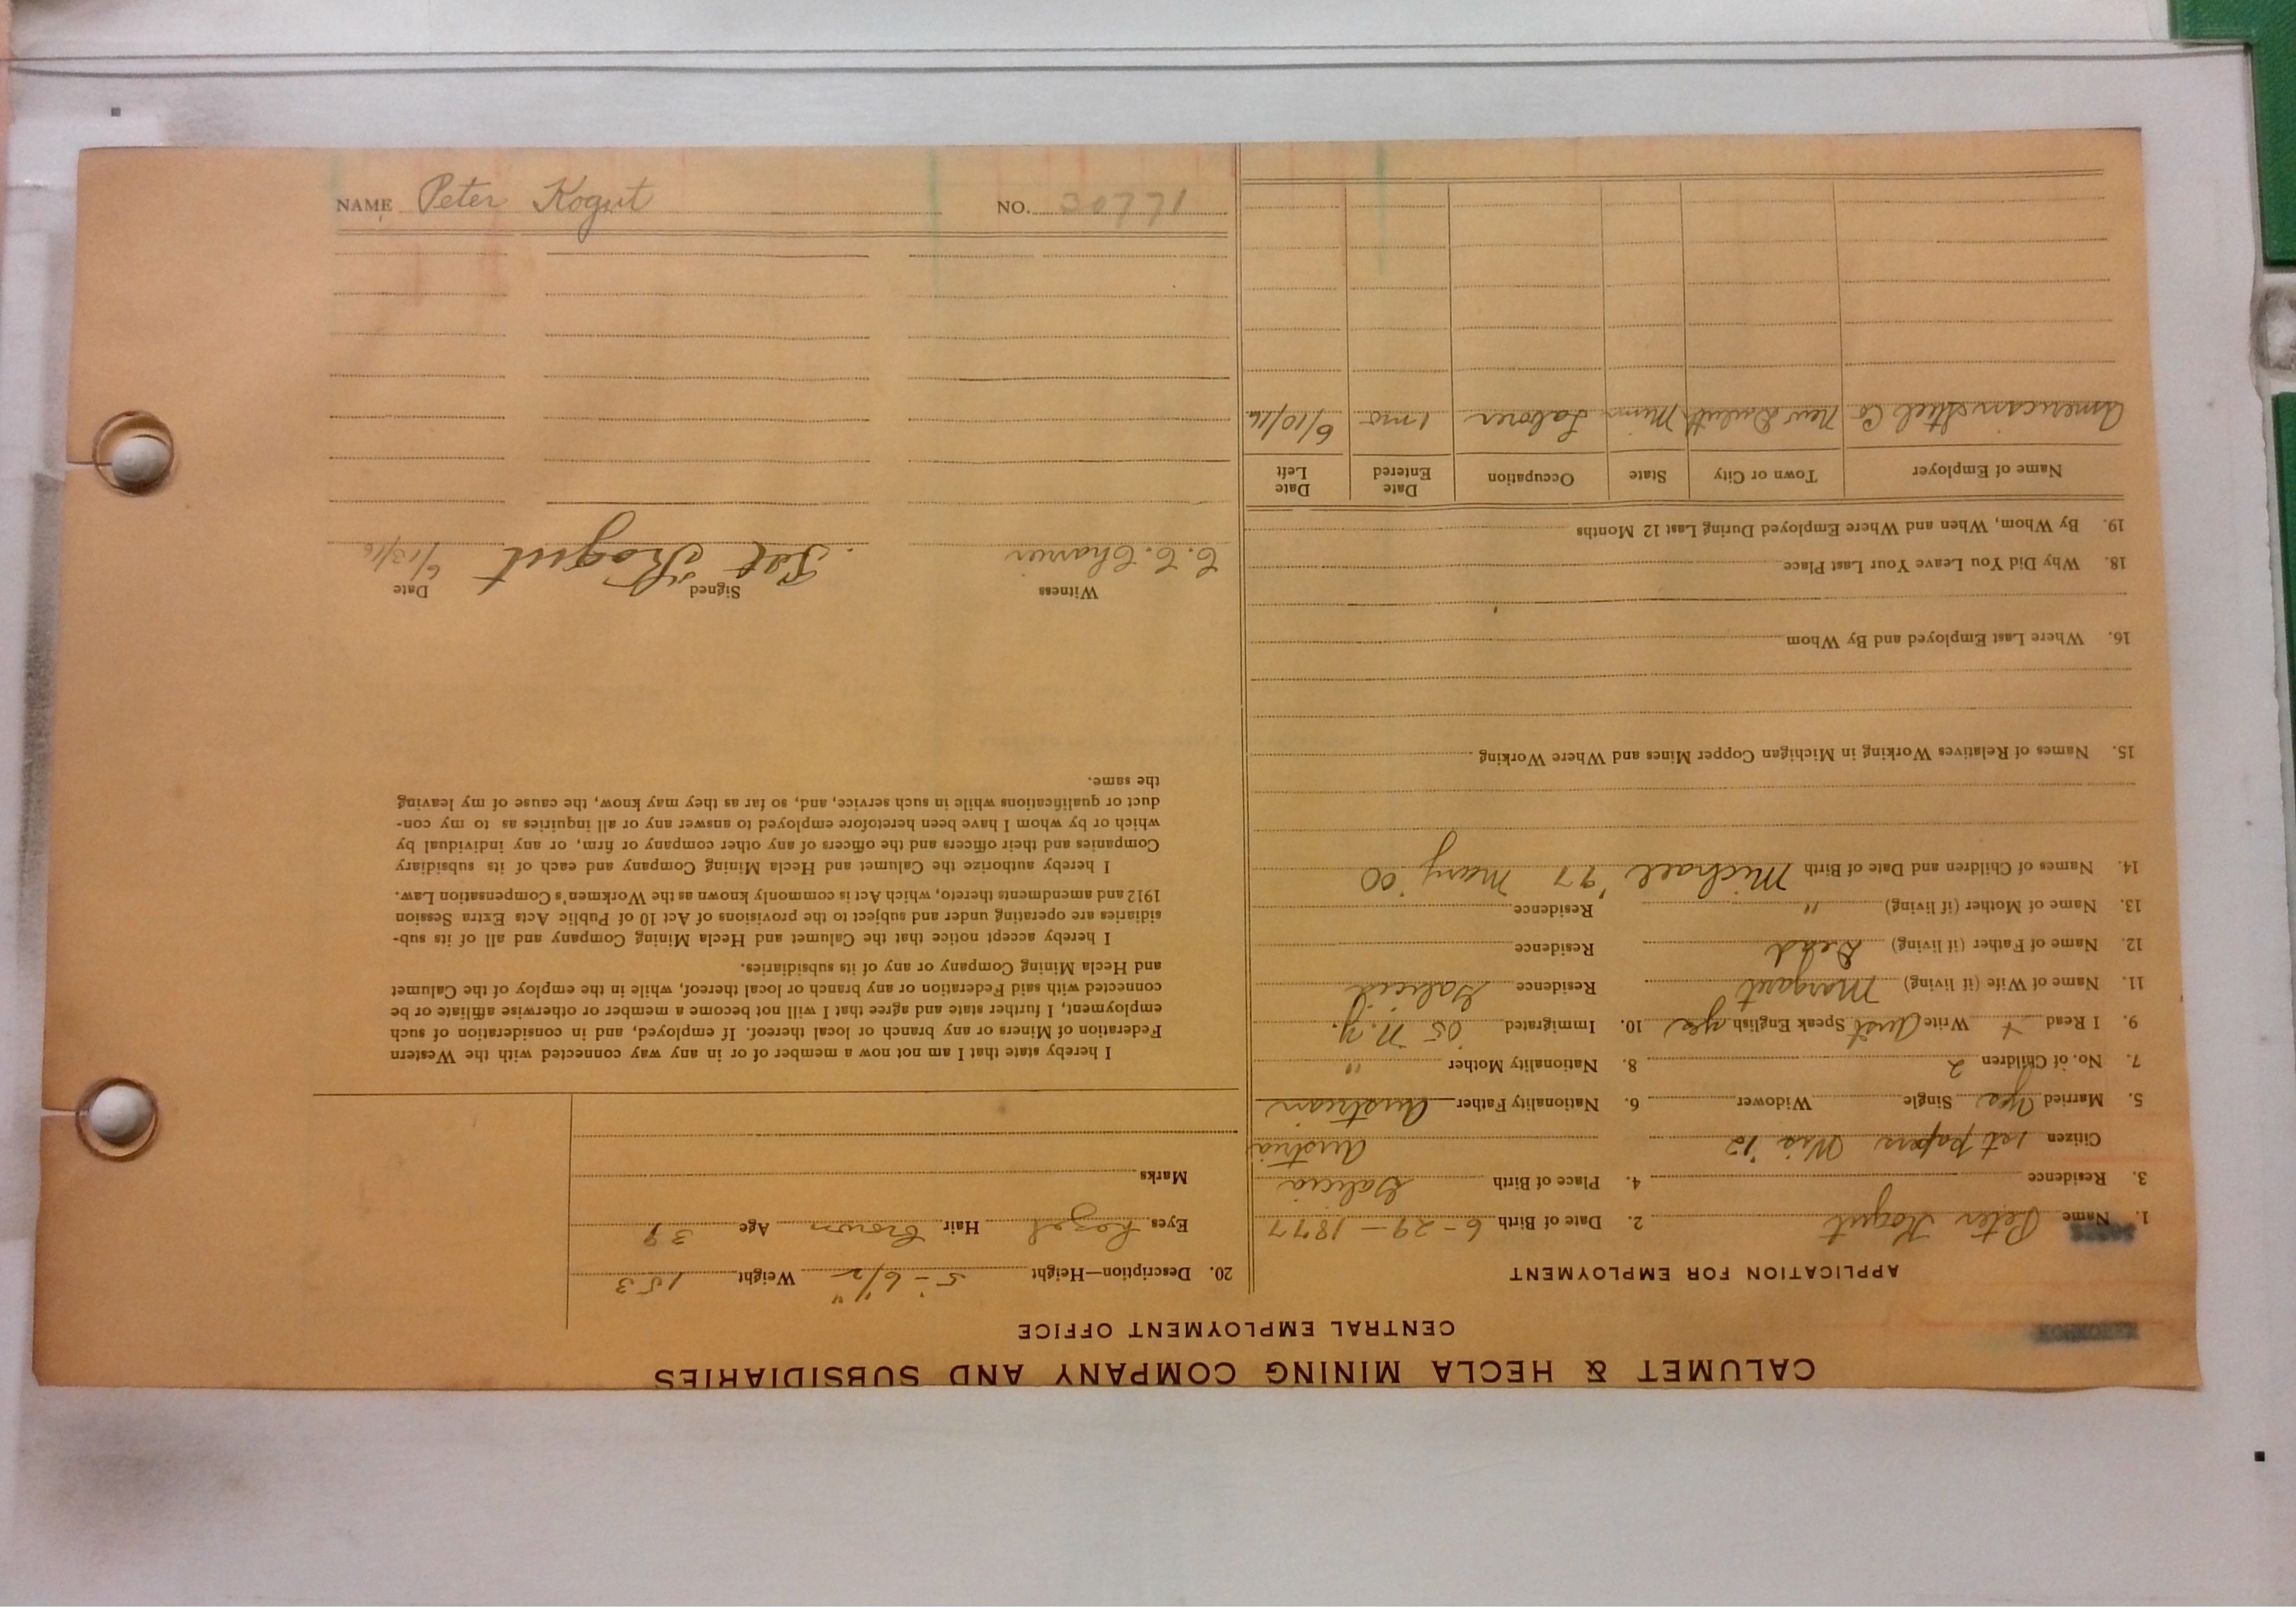 CALUMET & HECLA MINING COMPANY AND SUBSIDIARIES
CENTRAL EMPLOYMENT OFFICE
APPLICATION FOR EMPLOYMENT
1. Name Peter Kogut 2. Date of Birth 6-29-1877
3. Residence 4. Place of Birth Galicia
Citizen 1st papers Wis '12 Austria
5. Married Yes Single Widower 6. Nationality Father Austrian
7. No. of Children 2 8. Nationality Mother "
9. I Read + Write Aust Speak English yes 10. Immigrated '05 N.Y.
11. Name of Wife (if living) Margaret Residence Galicia
12. Name of Father (if living) Dead Residence
13. Name of Mother (if living) " Residence
14. Names of Children and Date of Birth Michael '97 Mary '00
15. Names of Relatives Working in Michigan Copper Mines and Where Working
16. Where Last Employed and By Whom
18. Why Did You Leave Your Last Place
19. By Whom, When and Where Employed During Last 12 Months
Name of Employer Town or City State Occupation Date Entered Date Left
American Steel Co New Duluth Minn Laborer 1 mo 6/10/16
20. Description—Height 5'-6 1/2" Weight 153
Eyes hazel Hair brown Age 39
Marks
I hereby state that I am not now a member of or in any way connected with the Western
Federation of Miners or any branch or local thereof. If employed, and in consideration of such
employment, I further state and agree that I will not become a member or otherwise affiliate or be
connected with said Federation or any branch or local thereof, while in the employ of the Calumet
and Hecla Mining Company or any of its subsidiaries.
I hereby accept notice that the Calumet and Hecla Mining Company and all of its sub-
sidiaries are operating under and subject to the provisions of Act 10 of Public Acts Extra Session
1912 and amendments thereto, which Act is commonly known as the Workmen's Compensation Law.
I hereby authorize the Calumet and Hecla Mining Company and each of its subsidiary
Companies and their officers and the officers of any other company or firm, or any individual by
which or by whom I have been heretofore employed to answer any or all inquiries as to my con-
duct or qualifications while in such service, and, so far as they may know, the cause of my leaving
the same.
Witness Signed Date
Pet Kogut 6/13/16
NAME Peter Kogut NO. 30771